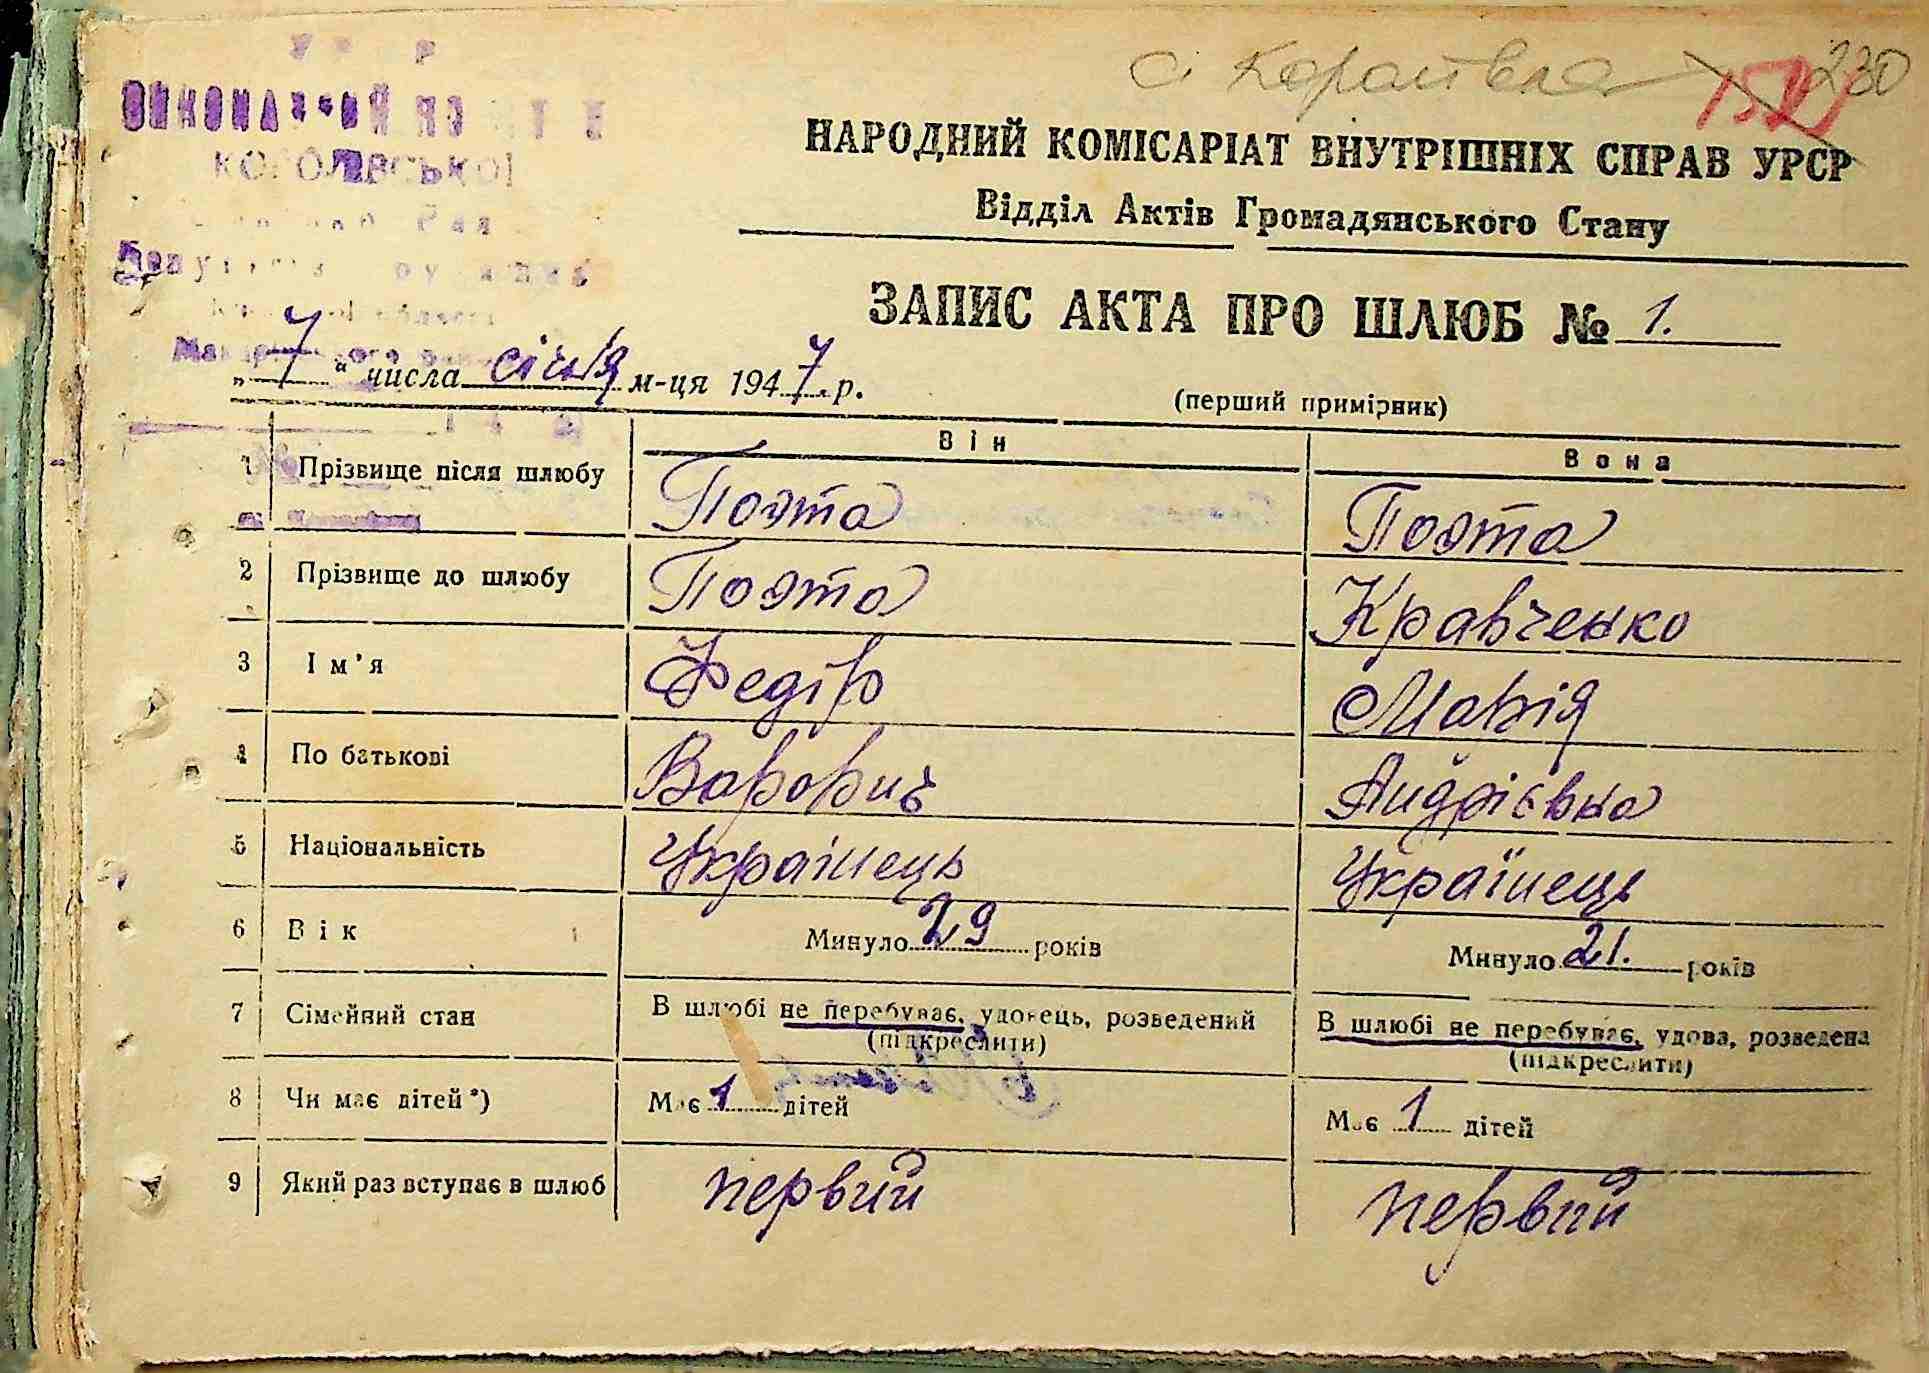 с. Королівка 230
КОРОЛІВСЬКОЇ
НАРОДНИЙ КОМІСАРІАТ ВНУТРІШНІХ СПРАВ УРСР
Відділ Актів Громадянського Стану
ЗАПИС АКТА ПРО ШЛЮБ № 1.
„ 7 “ числа січня м-ця 1947 р.
(перший примірник)
Він Вона
1 Прізвище після шлюбу Поэта Поэта
2 Прізвище до шлюбу Поэта Кравченко
3 Ім'я Федір Марія
4 По батькові Андрієвна
5 Національність Українець Українець
6 Вік Минуло 29 років Минуло 21. років
7 Сімейний стан В шлюбі не перебуває, удовець, розведений В шлюбі не перебуває, удова, розведена
(підкреслити) (підкреслити)
8 Чи має дітей*) Має 1 дітей Має 1 дітей
9 Який раз вступає в шлюб первий первий